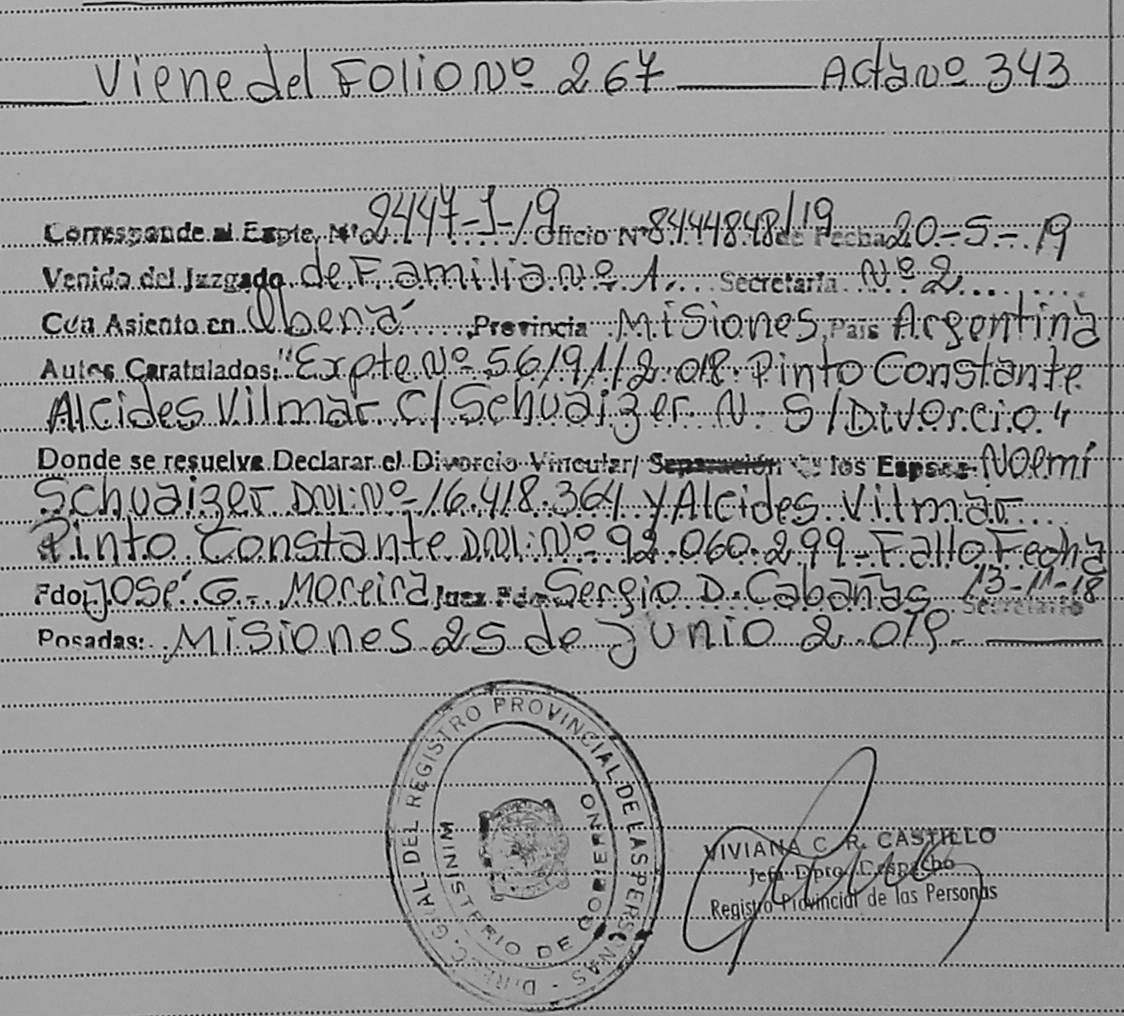 Viene del Folio Nº 267 Acta nº 343
Corresponde al Expte. Nº 2447-J-19 Oficio Nº 8444848/19 de Fecha 20-5-19
Venido del Juzgado de Familia nº 1. Secretaria Nº 2
Con Asiento en Oberá Provincia Misiones País Argentina
Autos Caratulados: "Expte Nº 56191/2.018 Pinto Constante
Alcides Vilmar C/ Schuaizer N. S/Divorcio"
Donde se resuelve Declarar el Divorcio Vincular/ Separación los Esposos Noemí
Schuaizer DNI: Nº 16.418.364 y Alcides Vilmar
Pinto Constante DNI: Nº 92.060.299 - Fallo Fecha
13-11-18
Fdo José G. Moreira Juez Fdo Sergio D. Cabañas Secretario
Posadas: Misiones 25 de Junio 2.019
DIREC. GRAL. DEL REGISTRO PROVINCIAL DE LAS PERSONAS
MINISTERIO DE GOBIERNO
VIVIANA C. R. CASTILLO
Jefa Dpto. Despacho
Registro Provincial de las Personas